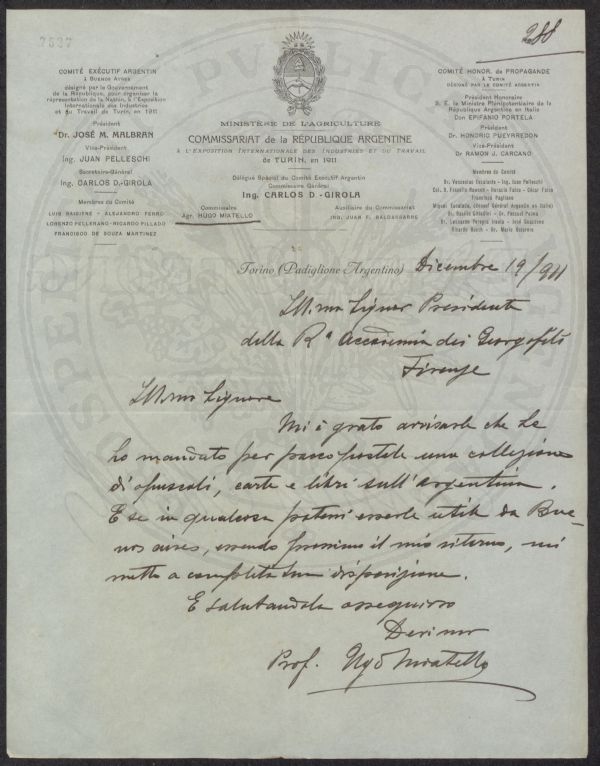 7527
288
COMITÉ EXÉCUTIF ARGENTIN
À BUENOS AYRES
désigné par le Gouvernement
de la République, pour organiser la
représentation de la Nation, à l'Exposition
Internationale des Industries
et du Travail de Turin, en 1911
Président
Dr. JOSÉ M. MALBRAN
Vice-Président
Ing. JUAN PELLESCHI
Secrétaire-Général
Ing. CARLOS D.-GIROLA
Membres du Comité
LUIS RAISIÑE - ALEJANDRO FERRO
LORENZO PELLERANO - RICARDO PILLADO
FRANCISCO DE SOUZA MARTINEZ
MINISTÈRE DE L'AGRICULTURE
COMMISSARIAT de la RÉPUBLIQUE ARGENTINE
À L'EXPOSITION INTERNATIONALE DES INDUSTRIES ET DU TRAVAIL
de TURIN, en 1911
Délégué Spécial du Comité Exécutif Argentin
Commissaire Général
Ing. CARLOS D.-GIROLA
Commissaire
Agr. HUGO MIATELLO
Auxiliaire du Commissariat
ING. JUAN F. BALDASSARRE
COMITÉ HONOR. de PROPAGANDE
À TURIN
DÉSIGNÉ PAR LE COMITÉ ARGENTIN
Président Honoraire
S. E. le Ministre Plénipotentiaire de la
République Argentine en Italie
Don EPIFANIO PORTELA
Président
Dr HONORIO PUEYRREDON
Vice-Président
Dr RAMON J. CARCANO
Membres du Comité
Dr. Wenceslao Escalante - Ing. Juan Pelleschi
Horacio Calvo - César Falco
Francisco Pagliano
(Consul Général Argentin en Italie)
Dr. Basilio Cittadini - Dr. Pascual Palma
Dr. Leonardo Pereyra Iraola - José Guazzone
Ricardo Bosch - Dr. Mario Ruberois
Torino (Padiglione Argentino) Dicembre 19/911
Ill.mo Signor Presidente
della Ra Accademia dei Georgofili
Firenze
Ill.mo Signore
Mi è grato avvisarle che Le
ho mandato per pacco postale una collezione
di opuscoli, carte e libri sull'Argentina.
E se in qualcosa potessi esserle utile da Bue-
nos aires, essendo prossimo il mio ritorno, mi
metto a completa Sua disposizione.
E salutandola ossequioso
Devimo
Prof. Ugo Miatello